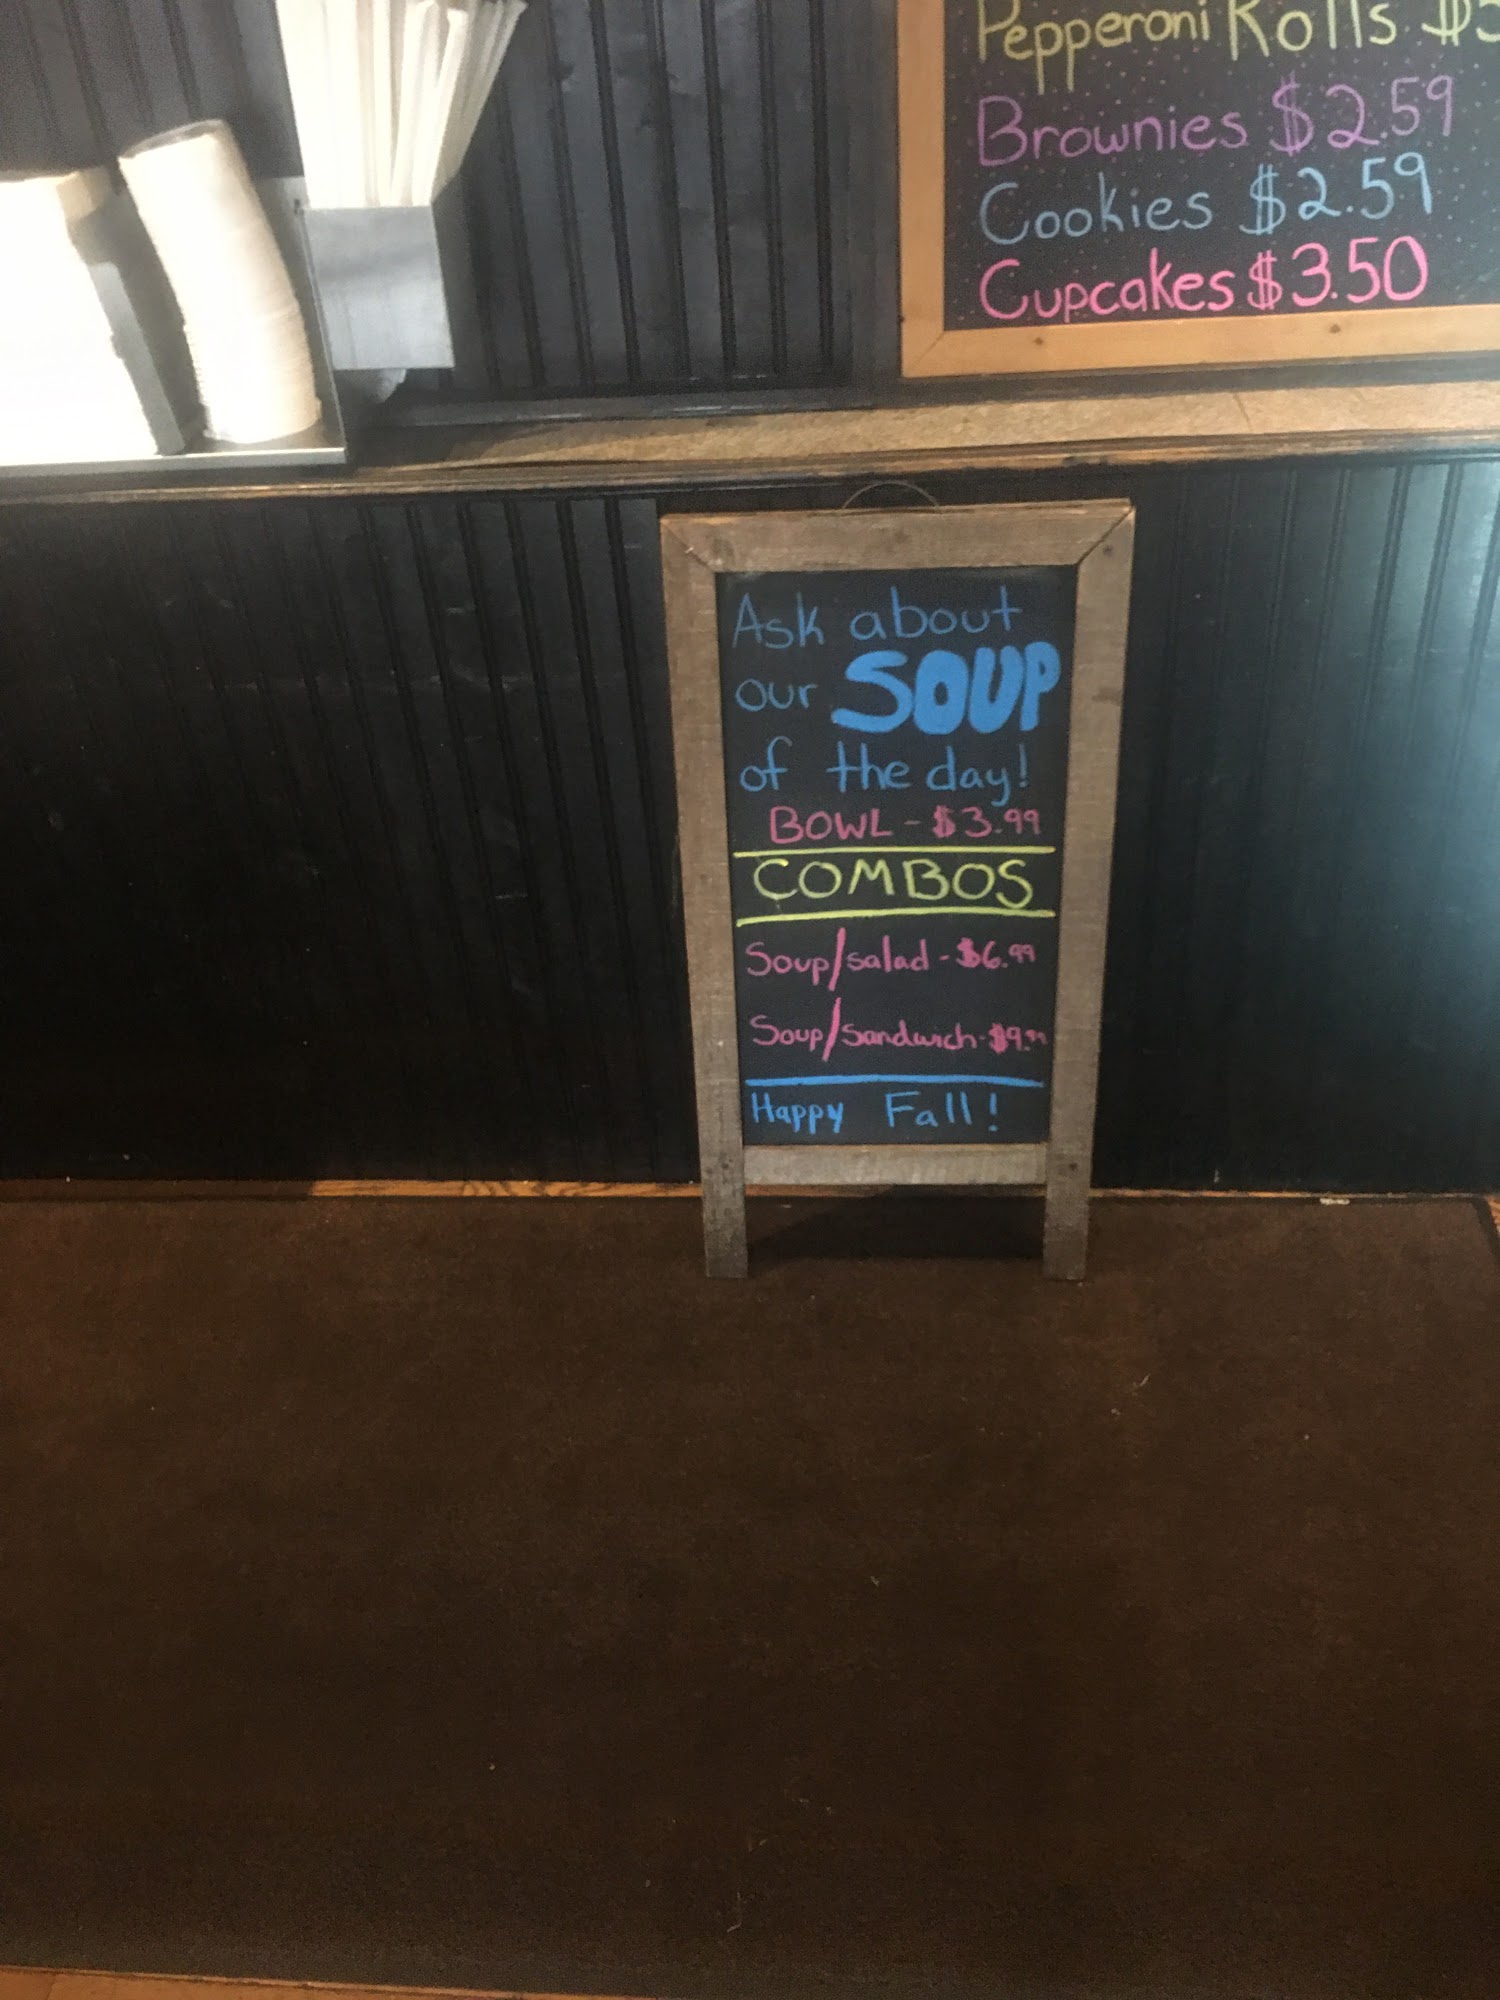 Pepperoni Rolls
Brownies $2.59
Cookies $2.59
Cupcakes $3.50
Ask about
our SOUP
of the day!
BOWL - $3.99
COMBOS
Soup/salad - $6.99
Soup/Sandwich - $9.99
Happy Fall!